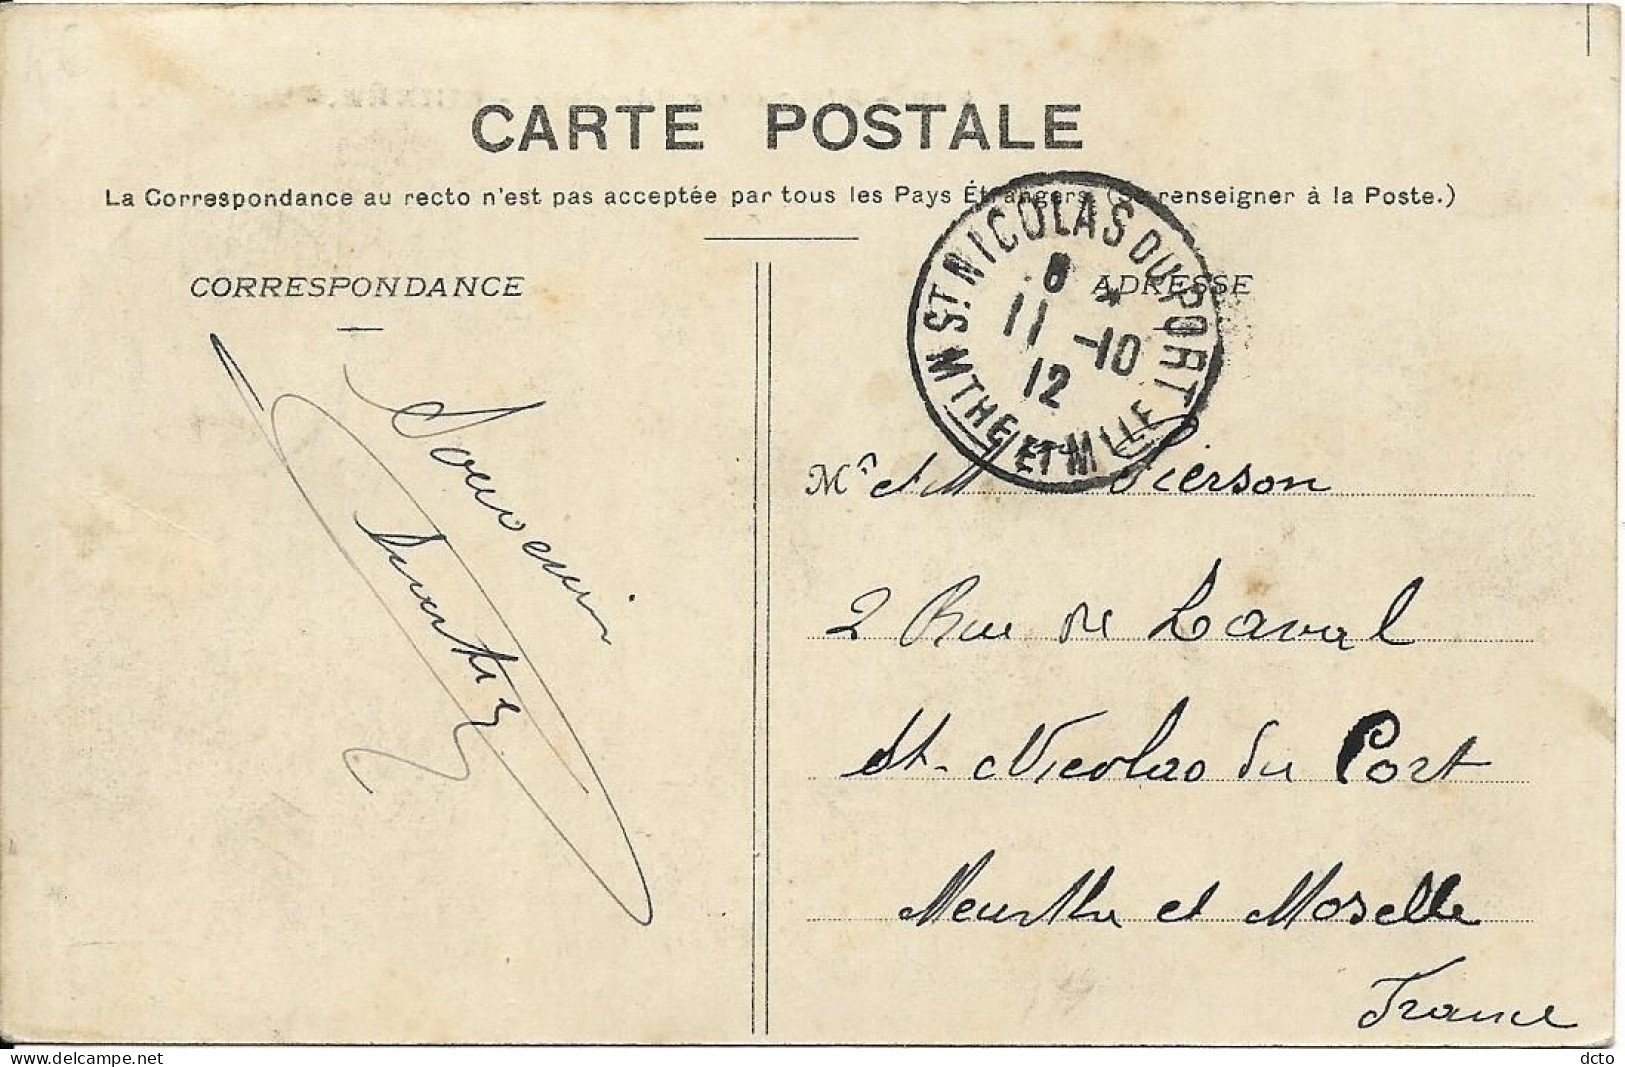 CARTE POSTALE
La Correspondance au recto n'est pas acceptée par tous les Pays Étrangers (Se renseigner à la Poste.)
CORRESPONDANCE
ADRESSE
ST NICOLAS DU PORT
8 *
11 -10
12
MTHE ET MLLE
Souvenir
Mr et M Pierson
2 Rue de Laval
St. Nicolas du Port
Meurthe et Moselle
France
delcampe.net
dcto